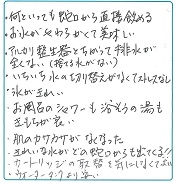 ・何といっても蛇口から直接飲める
・お水がやわらかくて美味しい
・アルカリ整生器とちがって排水が
全くない。(捨て水がない)
・いちいち水の切り替えがなくてストレスなし
・氷がきれい
・お風呂のシャワーも浴そうの湯も
きもちが良い
・肌のカサカサがなくなった
・きれいな水がどの蛇口からも出てくる!!
・カートリッジの取替を気にしなくてよい
・ウォーターサーバーより安い